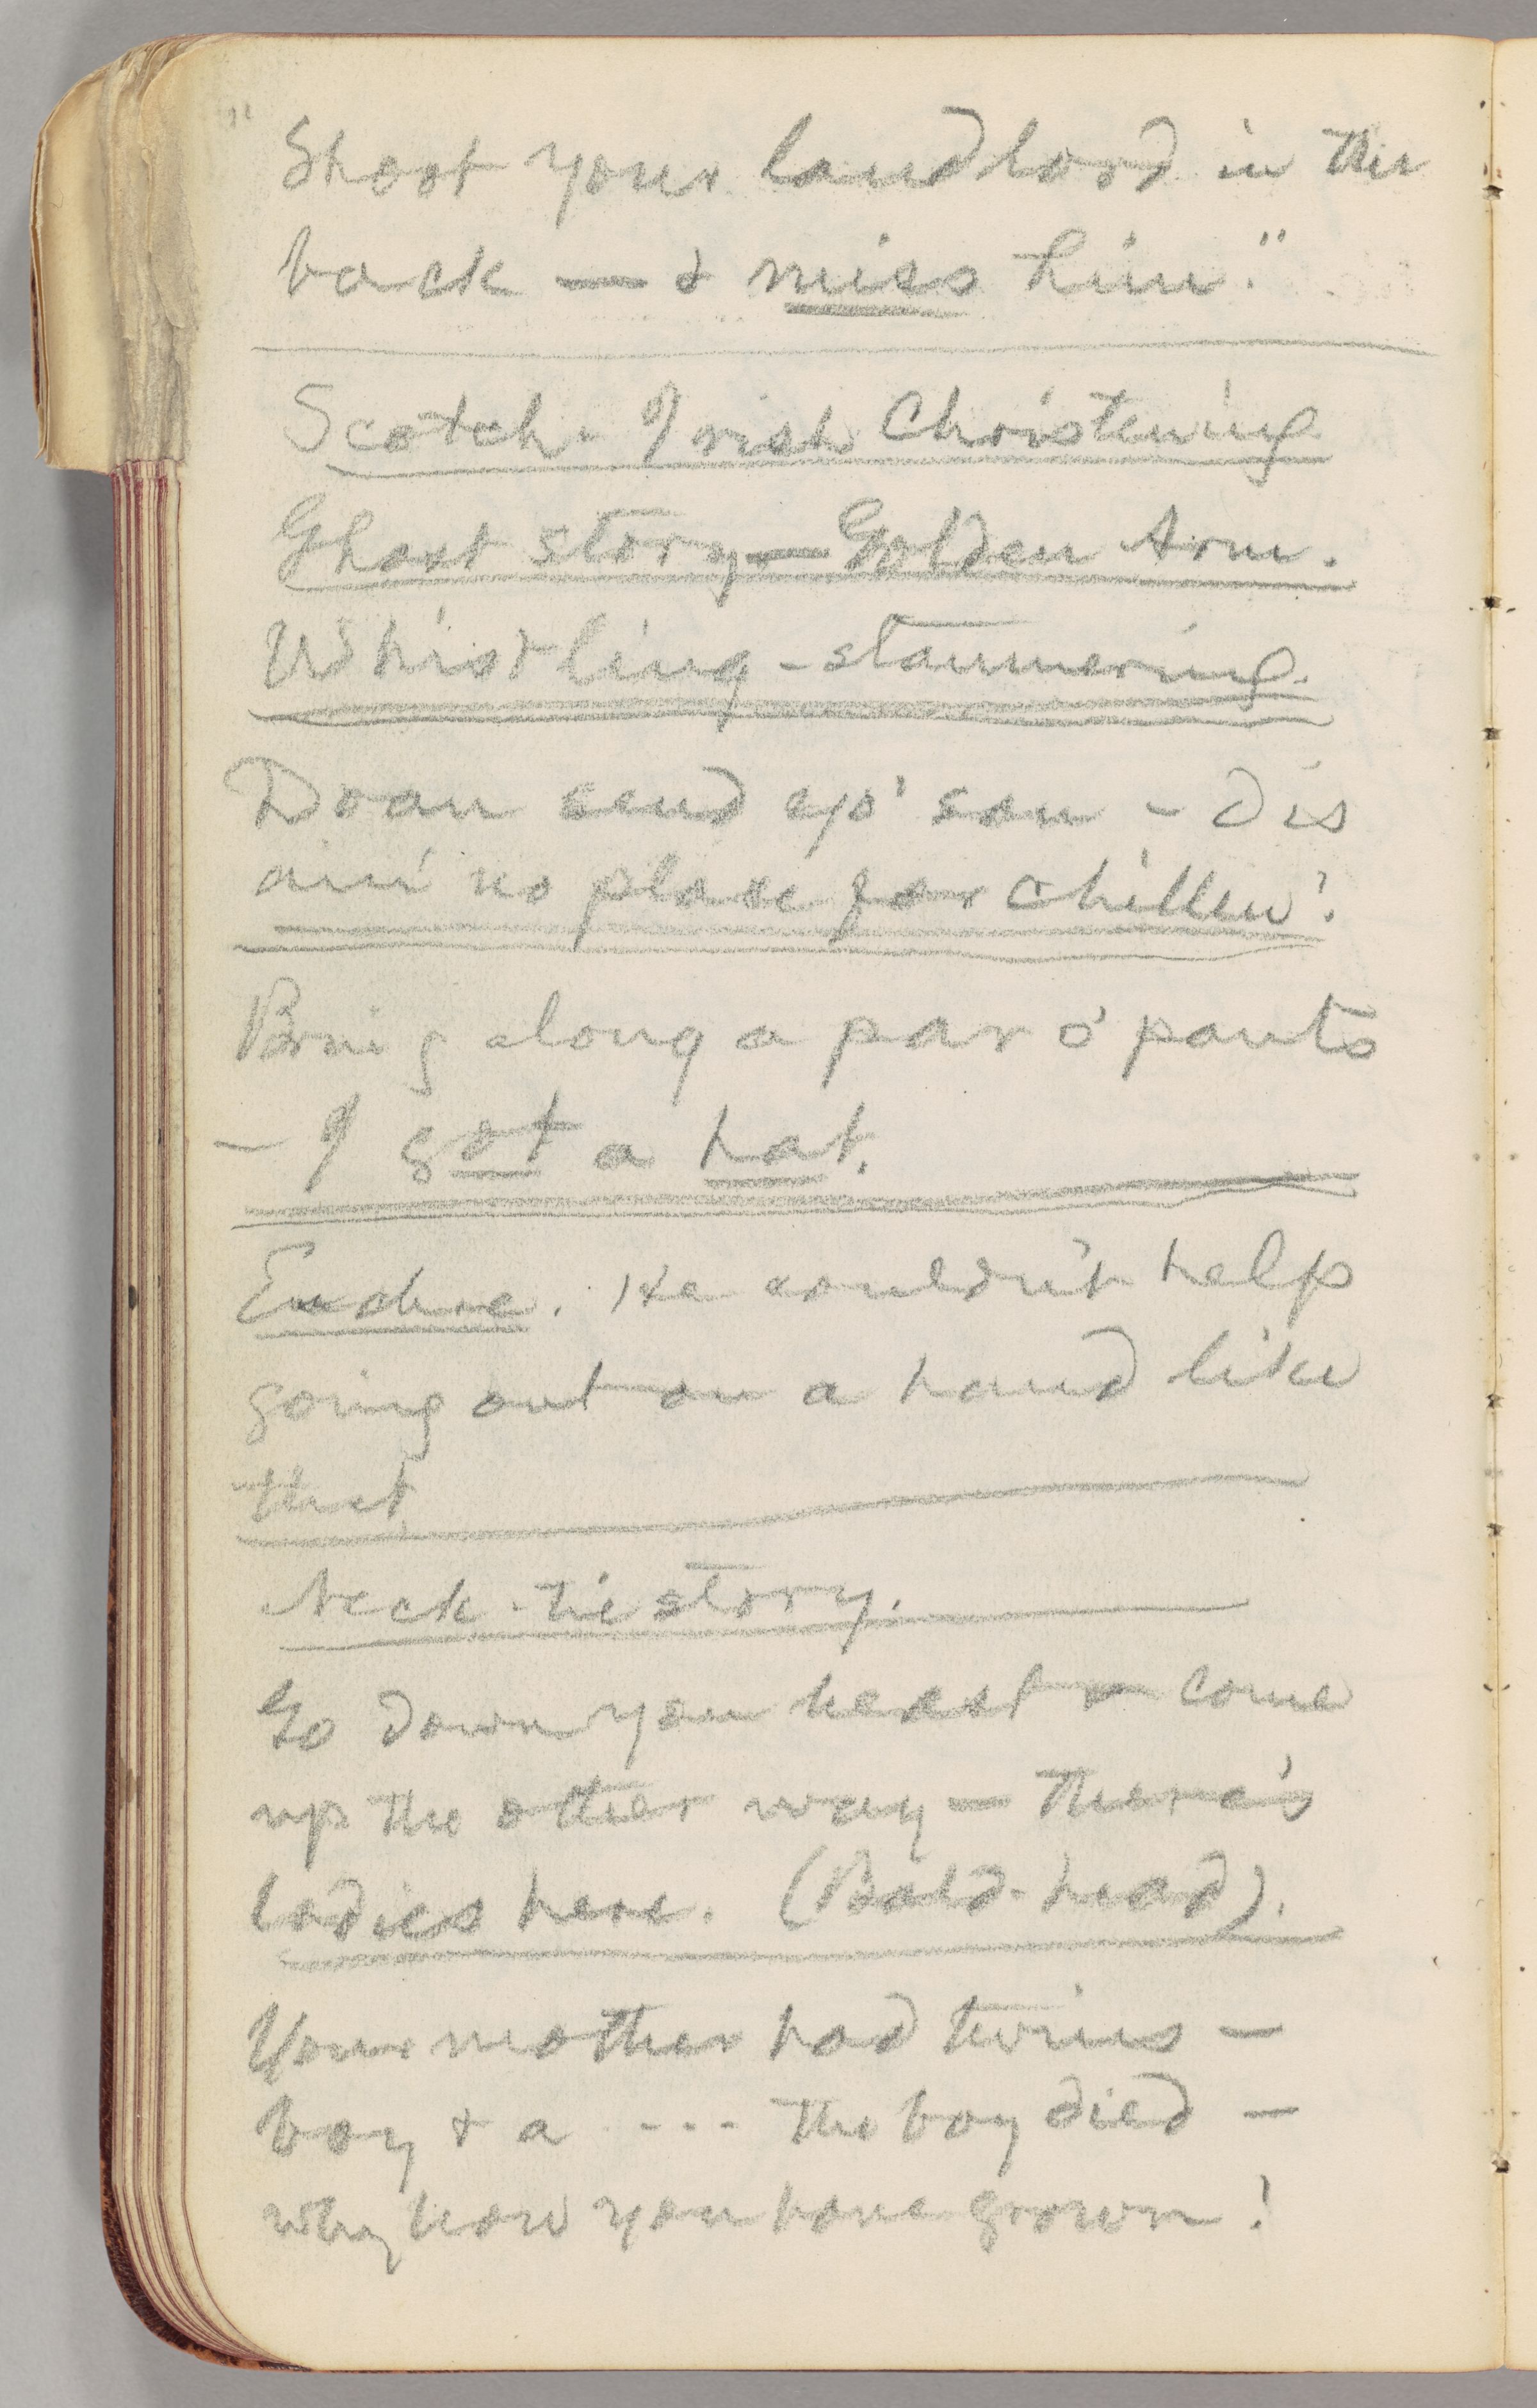 "Shoot your landlord in the
back — & miss him."
Scotch-Irish Christening
Ghost story — Golden Arm.
Whistling - stammering.
Doan send yo' son - dis
ain' no place for chillen!
Bring along a par o' pants
— I got a hat.
Euchre. He couldn't help
going out on a hand like
that
Neck-tie story.
Go down you beast & come
up the other way — there's
ladies here. (Bald-head).
Your mother had twins —
boy & a --- the boy died —
why how you have grown!